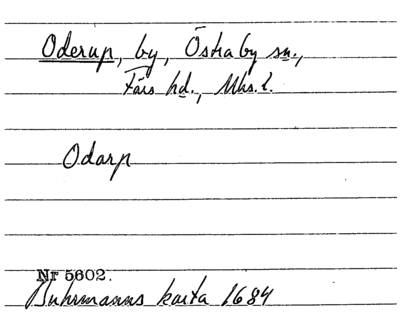 Oderup, by, Östraby sn.,
Färs hd., Mhs. l.
Odarp
Nr 5602.
Buhrmanns karta 1684